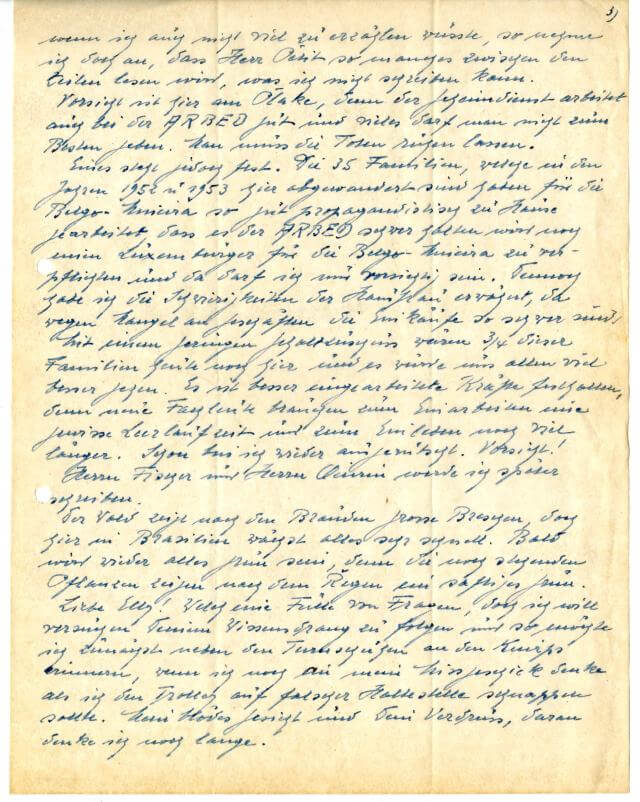 3)
wenn ich auch nicht viel zu erzählen wüsste, so nehme
ich doch an, dass Herr Petit so manches zwischen den
Zeilen lesen wird, was ich nicht schreiben kann.
Vorsicht ist hier am Platze, denn der Geheimdienst arbeitet
auch bei der ARBED gut und vieles darf man nicht zum
Besten geben. Man muss die Toten ruhen lassen.
Eines steht jedoch fest. Die 35 Familien, welche in den
Jahren 1952 u 1953 hier abgewandert sind haben für die
Belgo-Mineira so gut propagandistisch zu Hause
gearbeitet, dass es der ARBED schwer halten wird noch
einen Luxemburger für die Belgo-Mineira zu ver-
pflichten und da darf ich nur vorsichtig sein. Dennoch
habe ich die Schwierigkeiten der Hausfrau erwähnt, da
wegen Mangel an Geschäften die Einkäufe so schwer sind.
Mit einem geringen Gehaltzuschuss wären 3/4 dieser
Familien heute noch hier und es würde uns allen viel
besser gehen. Es ist besser eingearbeitete Kräfte festhalten,
denn neue Fachleute brauchen zum Einarbeiten eine
gewisse Leerlaufzeit und zum Einleben noch viel
länger. Schon bin ich wieder Vorsicht!
Herrn Fischer und Herrn werde ich später
schreiben.
Der Wald zeigt nach den Bränden grosse Breschen, doch
hier in Brasilien wächst alles sehr schnell. Bald
wird wieder alles grün sein, denn die noch stehenden
Pflanzen zeigen nach dem Regen ein saftiges Grün.
Liebe Elly! Welch eine Fülle von Fragen, doch ich will
versuchen Deinem Wissensdrang zu folgen und so möchte
ich zunächst neben den an den Knipps
erinnern, wenn ich noch an mein Missgeschick denke
als ich den Trolley auf falscher Haltestelle schnappen
sollte. Mein blödes Gesicht und Dein Verdruss, daran
denke ich noch lange.